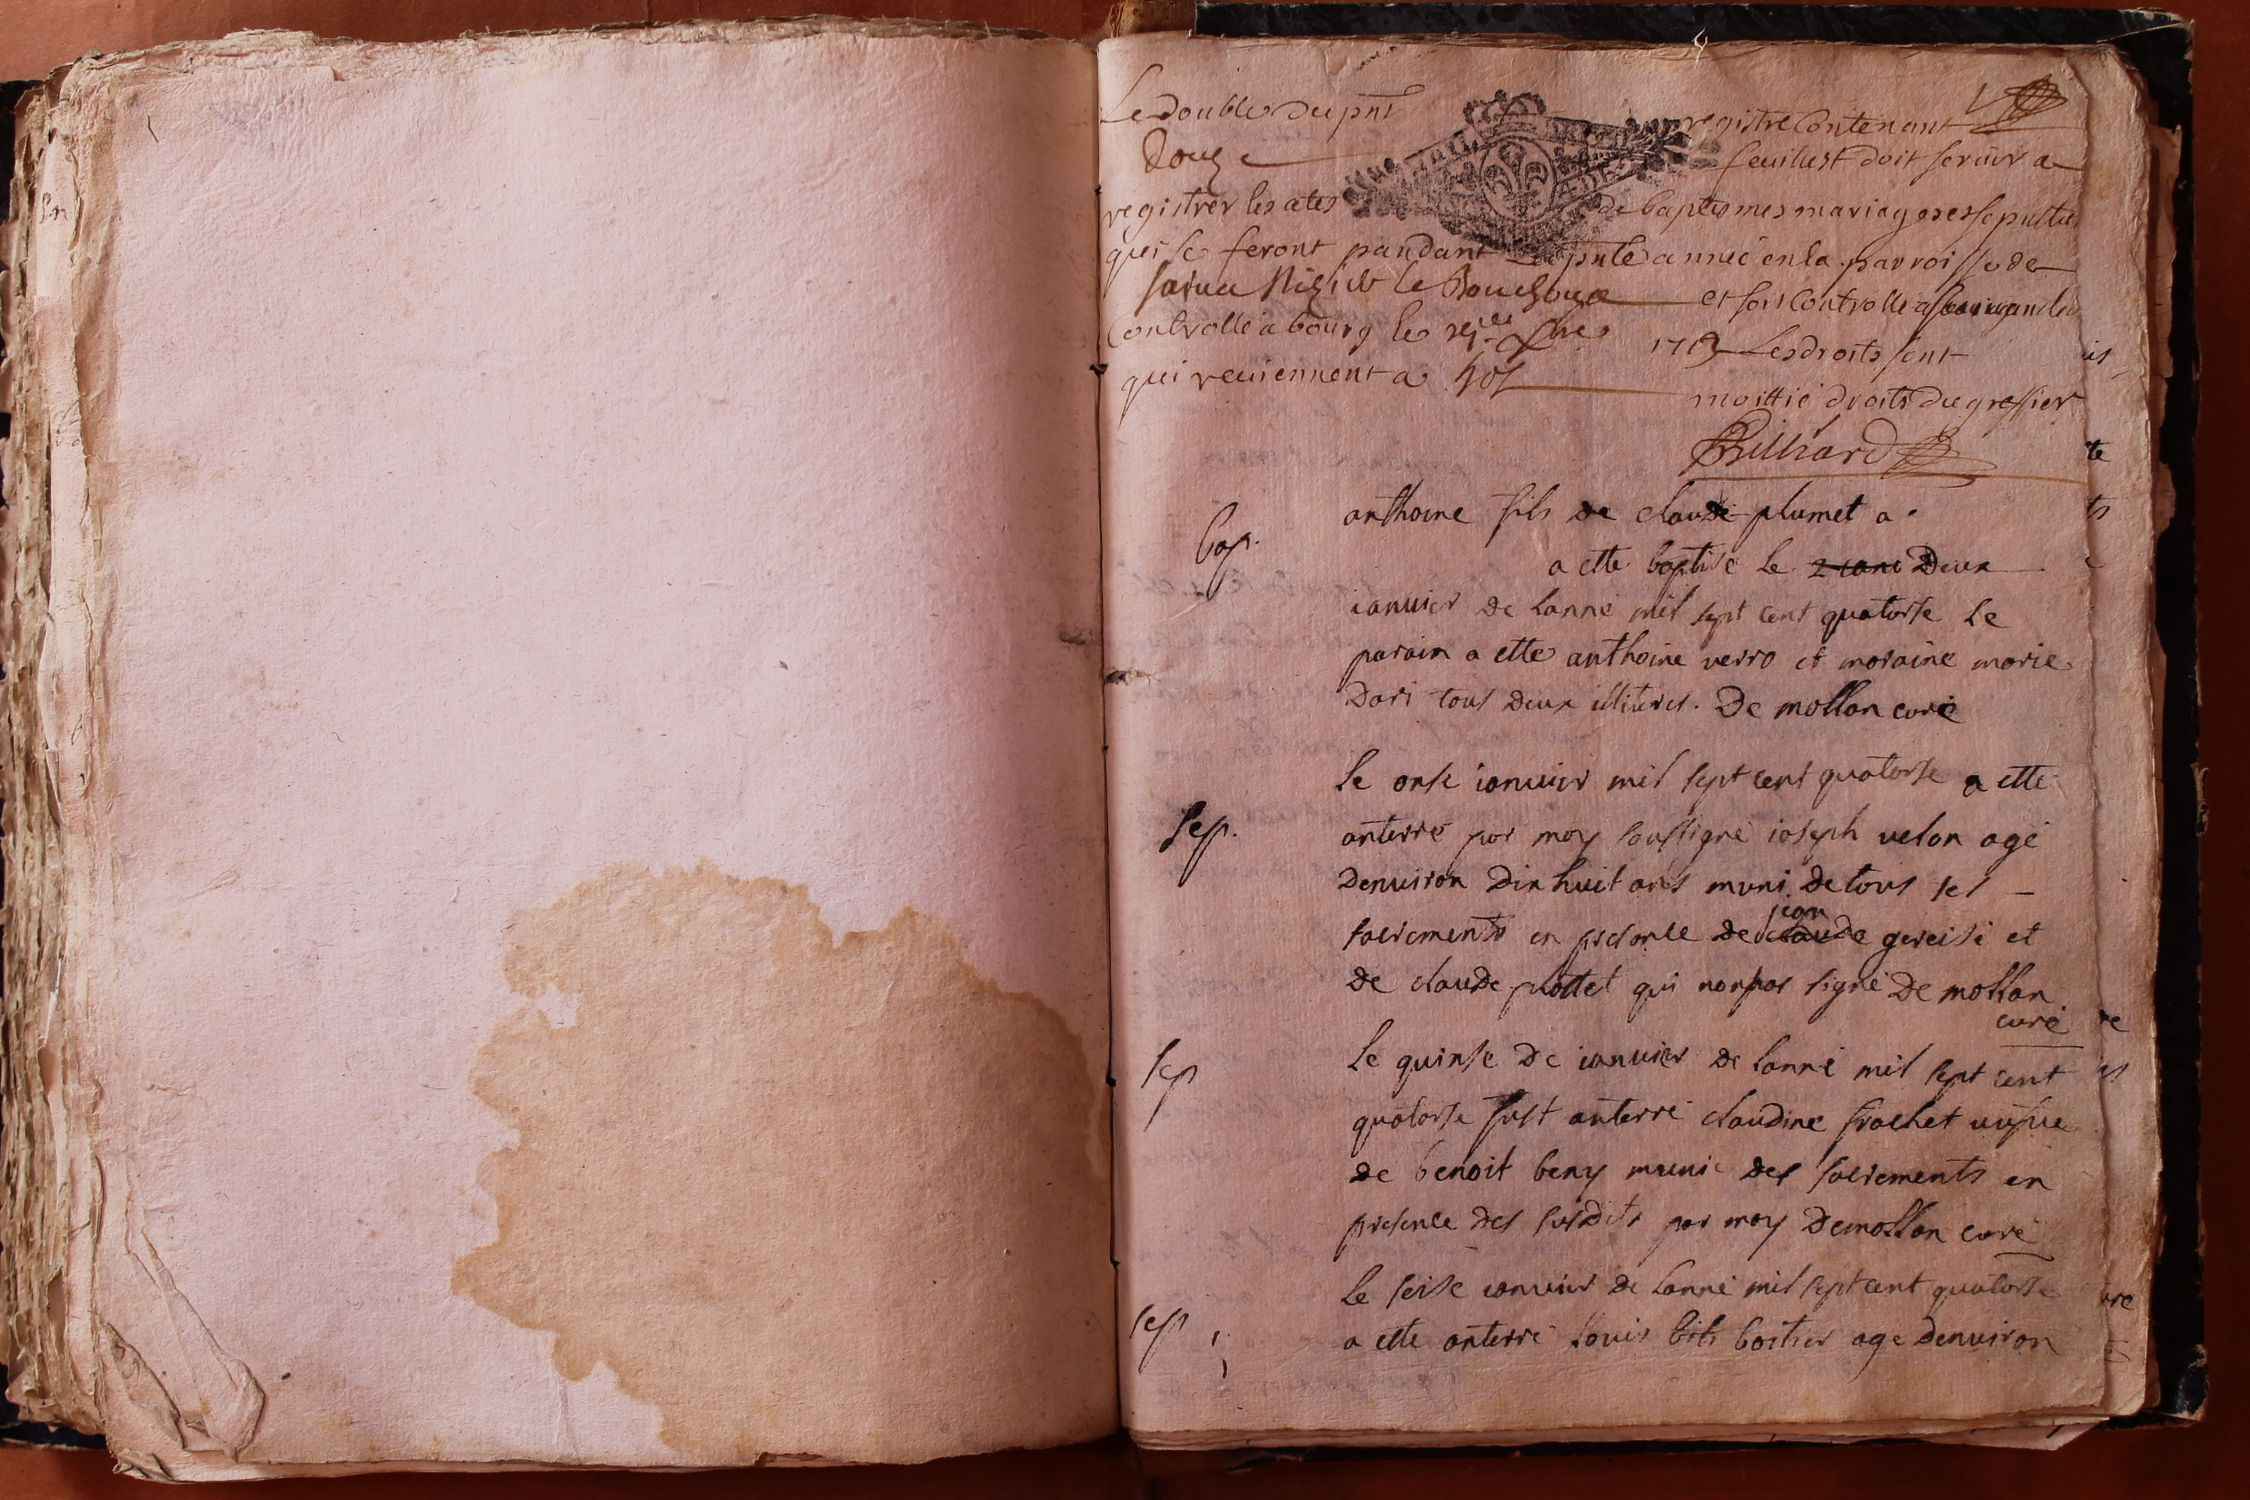 Le double du pnt registre Contenant
Douze feuillest doit servir a
registrer les ates de baptesmes mariages et sepultu
qui se feront pandant la pnte année en la parroisse de
Saint Nizier le Bouchoux et son Controlle
Controllé a bourg le 1713 Les droits sont
qui reviennent a moittié droits du greffier
Billiard
bap.
anthoine fils de claude plumet a
a ette baptise le deux
ianvier de lanné mil sept cent quatorse le
parain a ette anthoine verro et maraine marie
dari tous deux illitires. De mollan curé
Sep.
le onse ianvier mil sept cent quatorse a ette
anterré par moy soussigné ioseph velon agé
denviron dix huit ans muni de tous ses
sacrements en presance de jean claude gereisi et
de claude plottet qui nonpas signé De mollan
curé
sep
le quinse de ianvier de lanné mil sept cent
quatorse fust anterré claudine frachet
de benoit beny munie des sacrements en
presence des susdits par moy Demollan curé
sep
le seise ianvier de lanné mil sept cent quatorse
a ette anterré louis boitier agé denviron